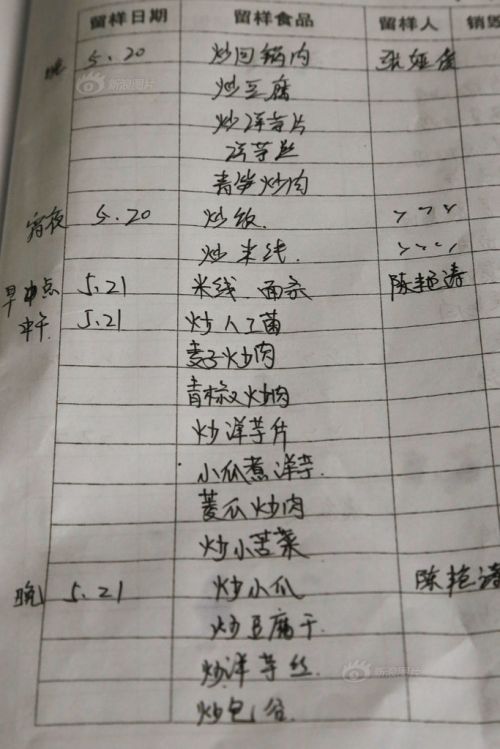 留样日期 留样食品 留样人 销毁
晚 5.20 炒回锅肉
新浪图片
炒豆腐
炒洋芋片
洋芋丝
青笋炒肉
宵夜 5.20 炒饭
炒米线
早点 5.21 米线 面条 陈艳清
中午 5.21 炒人工菌
炒肉
青椒炒肉
炒洋芋片
小瓜煮洋芋
茭瓜炒肉
炒小苦菜
晚 5.21 炒小瓜 陈艳清
炒豆腐干
炒洋芋丝
新浪图片
炒包谷